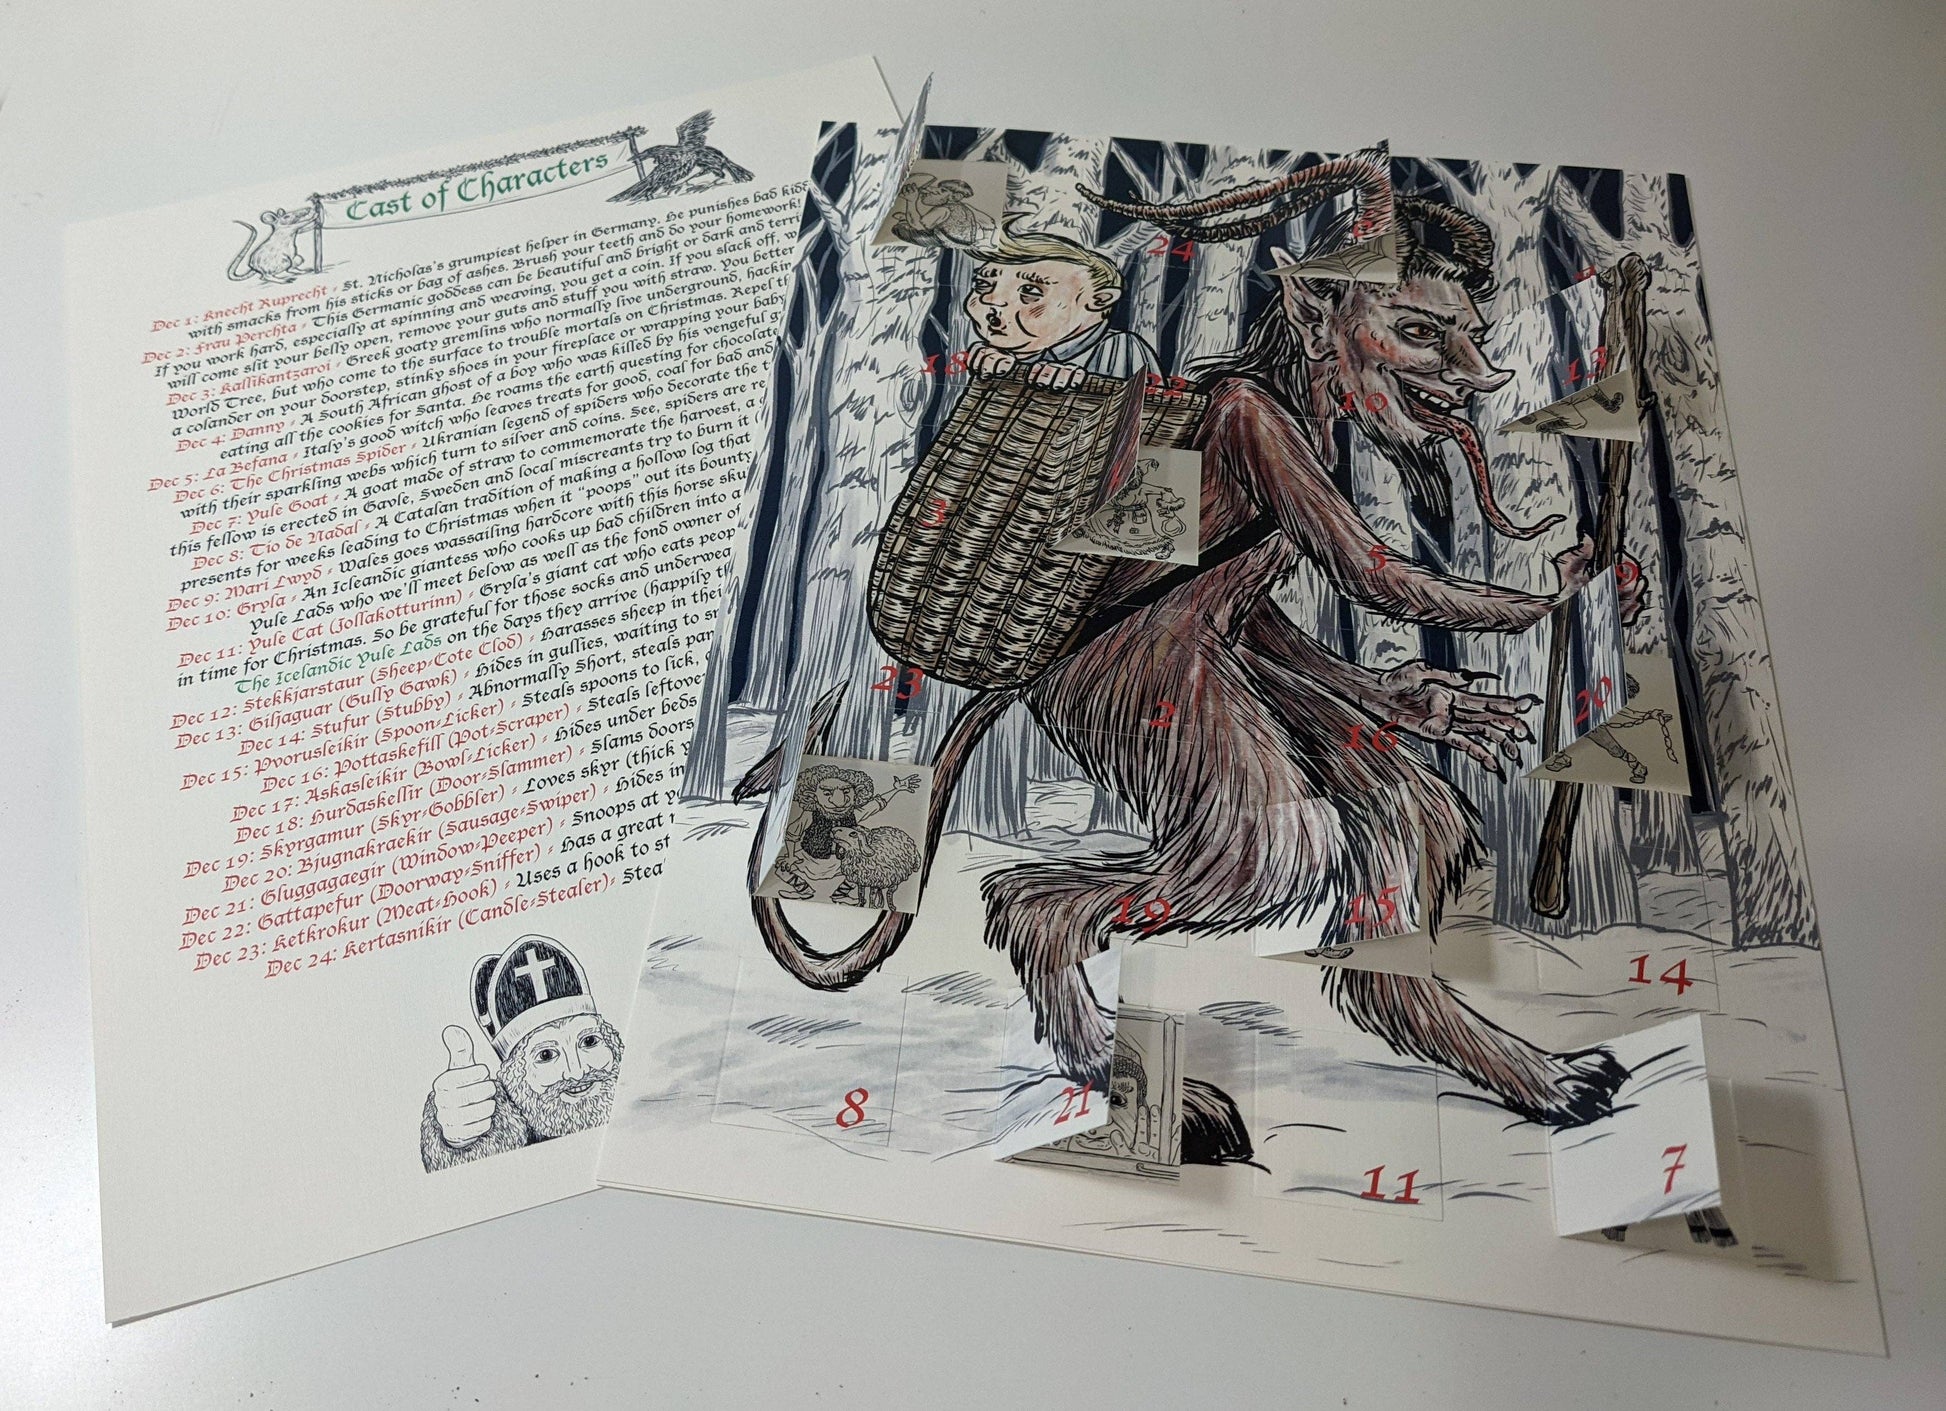 Cast of Characters
Dec 1: Knecht Ruprecht - St. Nicholas's grumpiest helper in Germany. He punishes bad kids
with smacks from his sticks or bag of ashes. Brush your teeth and do your homework!
Dec 2: Frau Perchta - This Germanic goddess can be beautiful and bright or dark and
If you work hard, especially at spinning and weaving, you get a coin. If you slack off,
will come slit your belly open, remove your guts and stuff you with straw. You better
Dec 3: Kallikantzaroi - Greek goaty gremlins who normally live underground,
World Tree, but who come to the surface to trouble mortals on Christmas. Repel
a colander on your doorstep, stinky shoes in your fireplace or wrapping your baby
Dec 4: Danny - A South African ghost of a boy who was killed by his vengeful
eating all the cookies for Santa. He roams the earth questing for chocolate
Dec 5: La Befana - Italy's good witch who leaves treats for good, coal for bad and
Dec 6: The Christmas Spider - Ukranian legend of spiders who decorate the
with their sparkling webs which turn to silver and coins. See, spiders are
Dec 7: Yule Goat - A goat made of straw to commemorate the harvest, a
this fellow is erected in Gavle, Sweden and local miscreants try to burn it
Dec 8: Tio de Nadal - A Catalan tradition of making a hollow log that
presents for weeks leading to Christmas when it "poops" out its bounty
Dec 9: Mari Lwyd - Wales goes wassailing hardcore with this horse
Dec 10: Gryla - An Icleandic giantess who cooks up bad children into a
Yule Lads who we'll meet below as well as the fond owner of
Dec 11: Yule Cat (Jollakotturinn) - Gryla's giant cat who eats
in time for Christmas. So be grateful for those socks and
The Icelandic Yule Lads on the days they arrive (happily
Dec 12: Stekkjarstaur (Sheep-Cote Clod) - Harasses sheep in their
Dec 13: Giljaguar (Gully Gawk) - Hides in gullies, waiting to
Dec 14: Stufur (Stubby) - Abnormally Short, steals
Dec 15: Pvorusleikir (Spoon-Licker) - Steals spoons to lick,
Dec 16: Pottaskefill (Pot-Scraper) - Steals
Dec 17: Askasleikir (Bowl-Licker) - Hides under beds
Dec 18: Hurdaskellir (Door-Slammer) - Slams doors
Dec 19: Skyrgamur (Skyr-Gobbler) - Loves skyr (thick
Dec 20: Bjugnakraekir (Sausage-Swiper) - Hides in
Dec 21: Gluggagaegir (Window-Peeper) - Snoops at
Dec 22: Gattapefur (Doorway-Sniffer) - Has a great
Dec 23: Ketkrokur (Meat-Hook) - Uses a hook to
Dec 24: Kertasnikir (Candle-Stealer)-
24
13
18
22
10
3
5
9
23
2
16
20
19
15
14
8
21
11
7